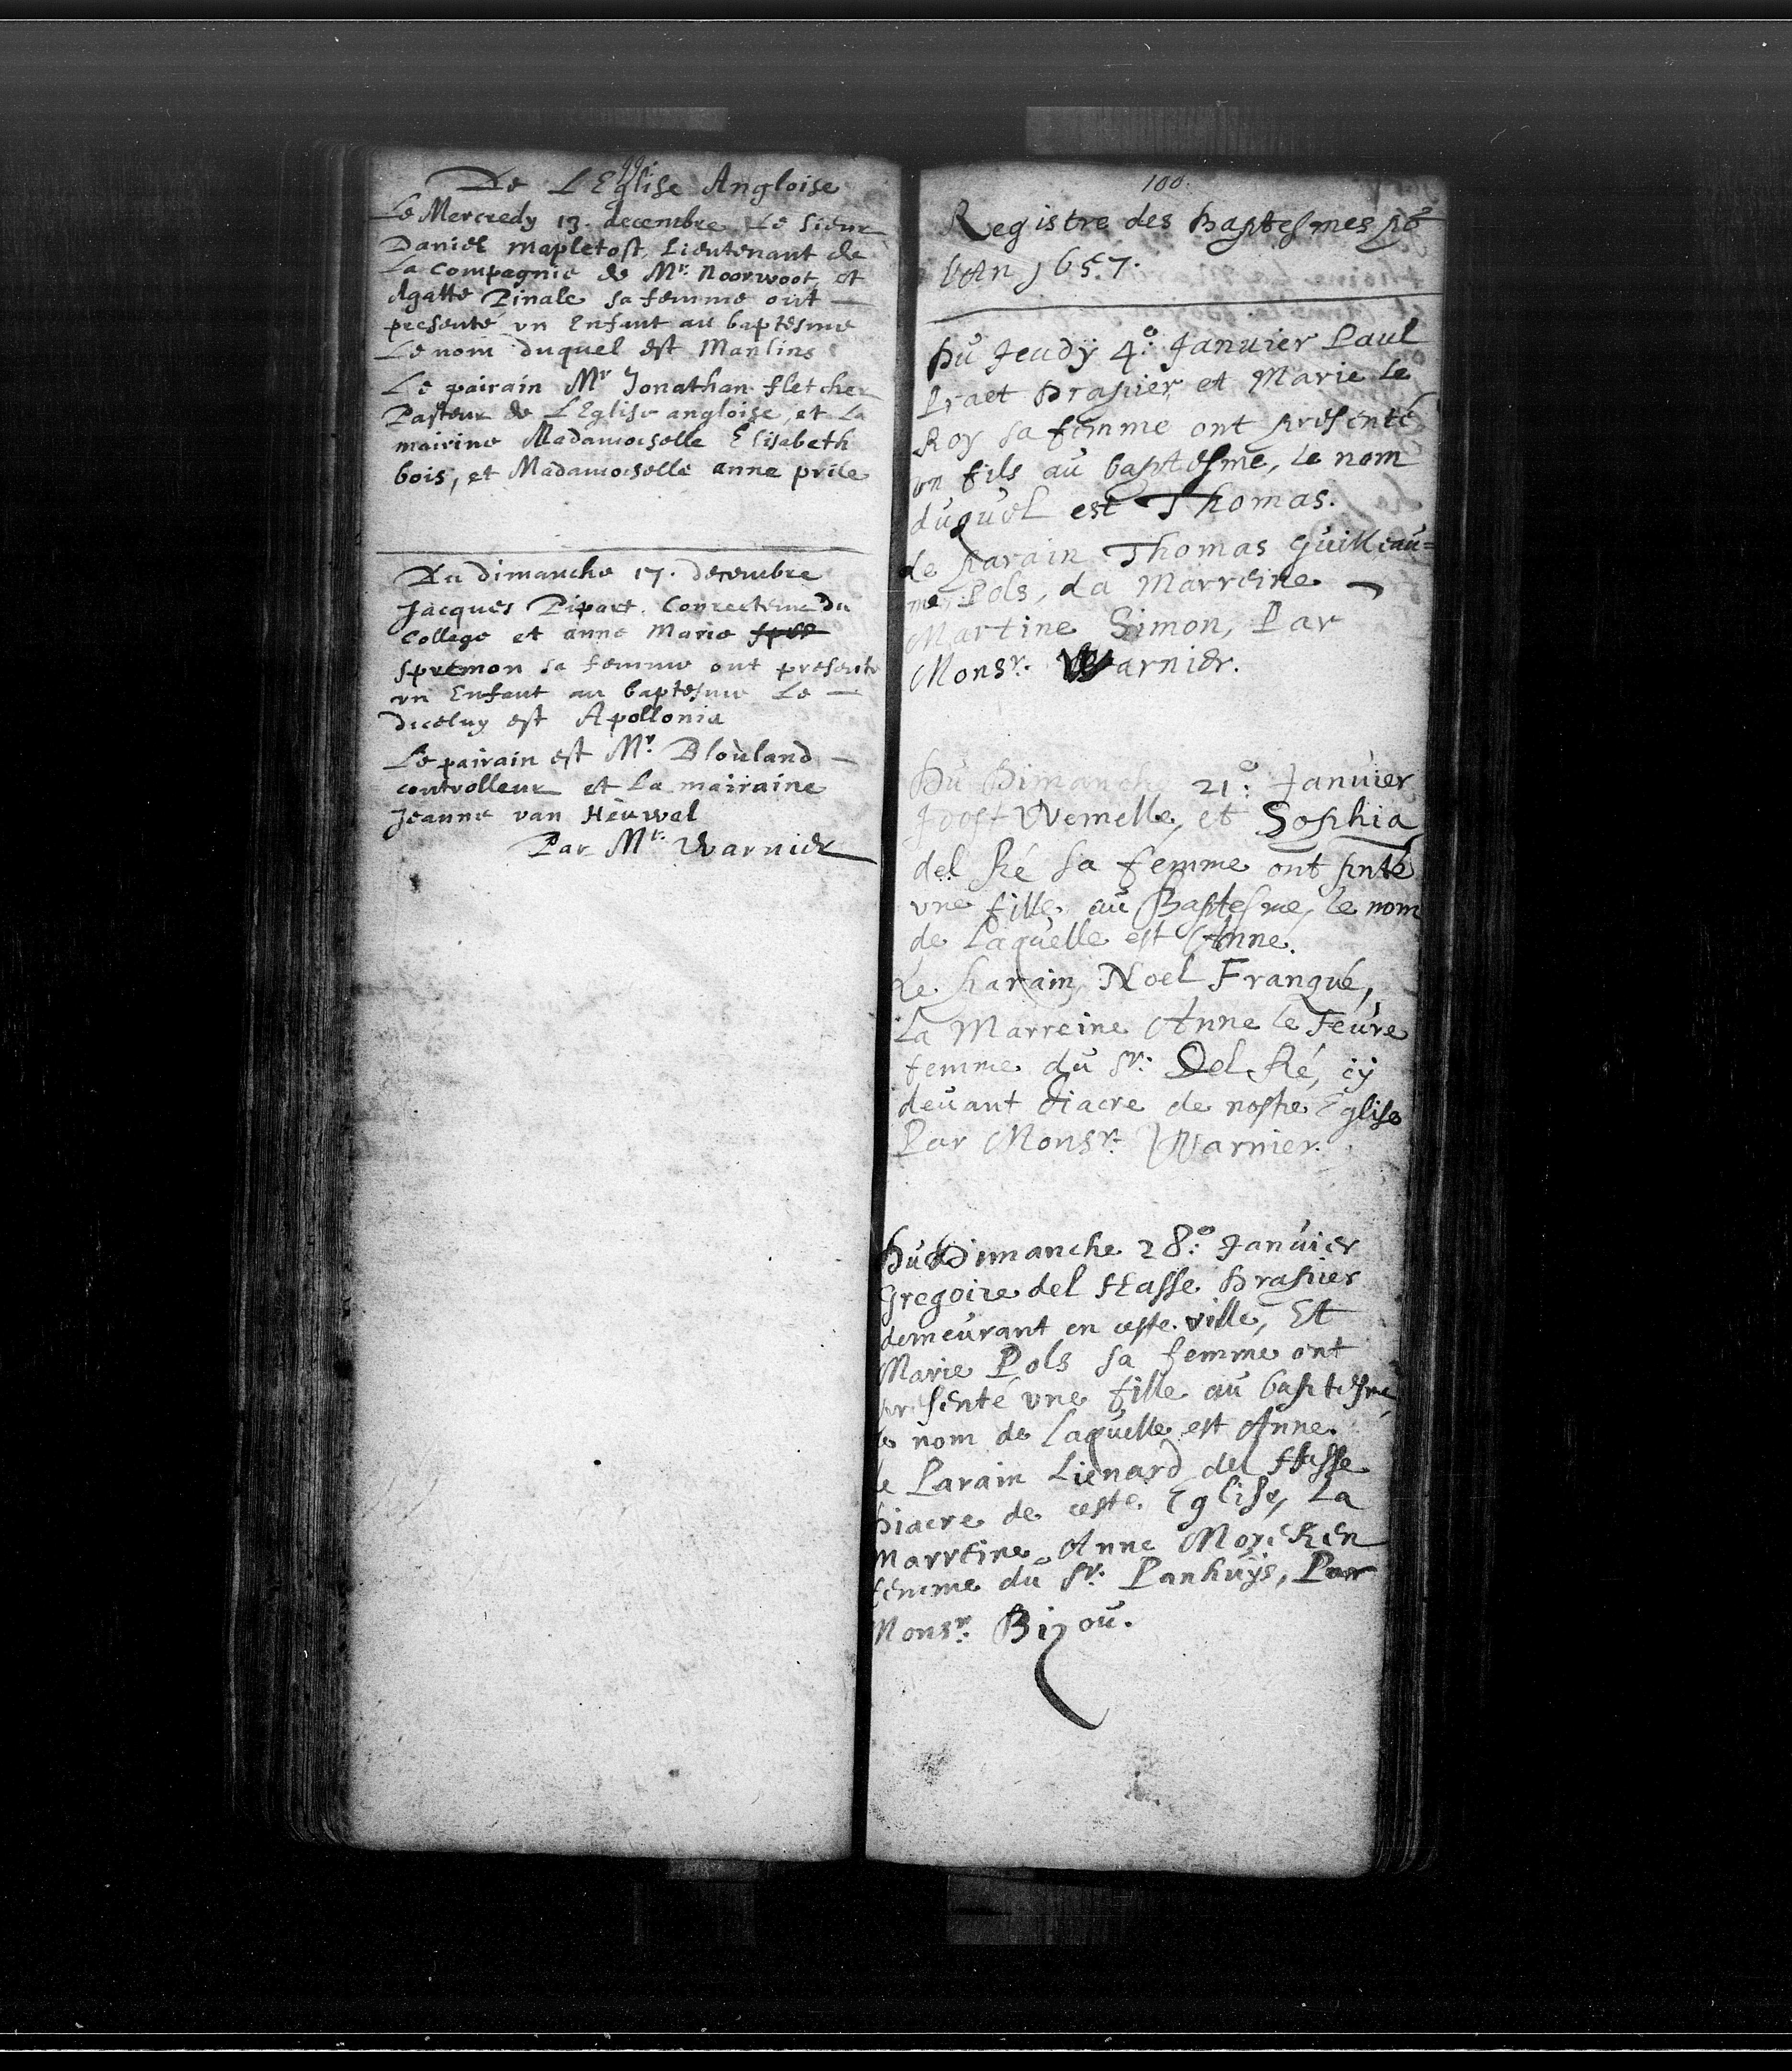 99
De L'Eglise Angloise
Le Mercredy 13. decembre Le Sieur
Daniel Mapletoft, Lieutenant de
La Compagnie de Mr. Noorwoot, et
Agatte Pinale sa femme ont —
presenté vn Enfant au baptesme
Le nom duquel est
Le pairain Mr Jonathan fletcher
Pasteur de L'Eglise angloise, et La
mairine Madamoiselle Elisabeth
bois, et Madamoiselle anne prile
Du dimanche 17. decembre
Jacques Pipart. Correcteur du
College et anne Marie
Spremon sa femme ont presente
vn Enfant au baptesme Le —
diceluy est Apollonia
Le pairain est Mr. Blouland —
controlleur et La mairaine
Jeanne van Heuwel
Par Mr. Warnier
100.
Registre des Baptesmes
l'An 1657.
Du Jeudÿ 4.o Januier Paul
Praet Drapier, et Marie le
Roy sa femme ont presenté
vn fils au baptesme, le nom
duquel est Thomas.
Le parain Thomas Guilleau=
me Pols, La Marreine
Martine Simon, Par
Monsr. Warnier.
Du Dimanche 21.o Januier
Joost Wemelle, et Sophia
del Ré sa femme ont pnté
vne fille au Baptesme, le nom
de Laquelle est Anne.
Le parain Noel Franqué,
La Marreine Anne le Feure
femme du Sr. Del Ré, cÿ
deuant diacre de nostre Eglise
Par Monsr. Warnier.
Du Dimanche 28.o Januier
Gregoire del Hasse Drapier
demeurant en ceste ville, Et
Marie Pols sa femme ont
presenté vne fille au baptesme,
le nom de Laquelle est Anne.
le Parain Lienard del Hasse
Diacre de ceste Eglise, La
Marreine Anne Moreken
femme du Sr. Panhuÿs, Par
Monsr. Bizou.